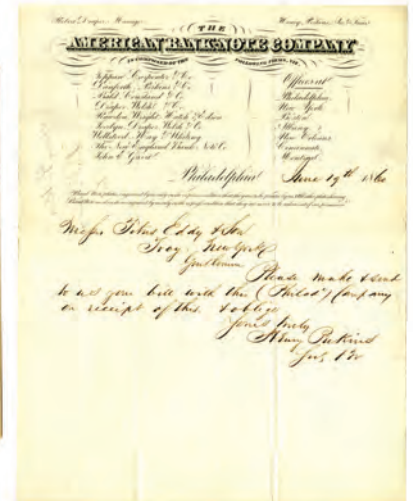 Henry Perkins, Sec. & Treas.
THE
AMERICAN BANK NOTE COMPANY
INCORPORATED BY THE FOLLOWING FIRMS, VIZ.
Toppan Carpenter & Co.
Danforth, Perkins & Co.
Bald, Cousland & Co.
Draper Welsh & Co.
Rawdon, Wright, Hatch & Edson
Jocelyn, Draper, Welsh & Co.
Wellstood, Hay & Whiting
The New England Bank Note Co.
John E. Gavit
Offices at
Philadelphia
New York
Boston
Albany
New Orleans
Cincinnati
Montreal
Philadelphia June 19th 1860
Messrs Titus Eddy & Son
Troy. New York
Gentlemen
Please make & send
to us your bill with this (Philada) Company
on receipt of this. & oblige
Yours truly
Henry Perkins